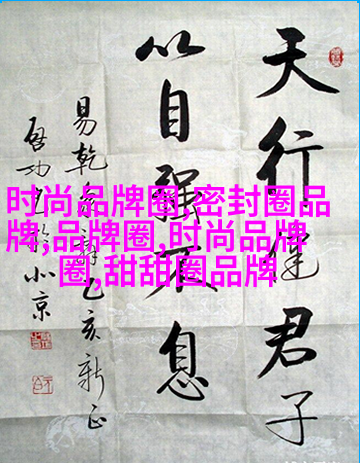 时尚品牌圈,密封圈品
牌,品牌圈,时尚品牌
圈,甜甜圈品牌
天行健君子
以自强不息
易乾 乙亥新正
啟功 北京